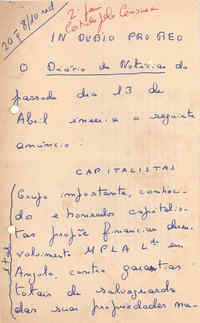 IN DUBIO PRO REO
O Diário de Notícias do
passado dia 13 de
Abril inseria o seguinte
anúncio:
CAPITALISTAS
Grupo importante, conheci-
do e honrados capitalis-
tas propõe financiar desen-
volvimento MPLA Lda em
Angola, contra garantias
totais de salvaguarda
das suas propriedades na-